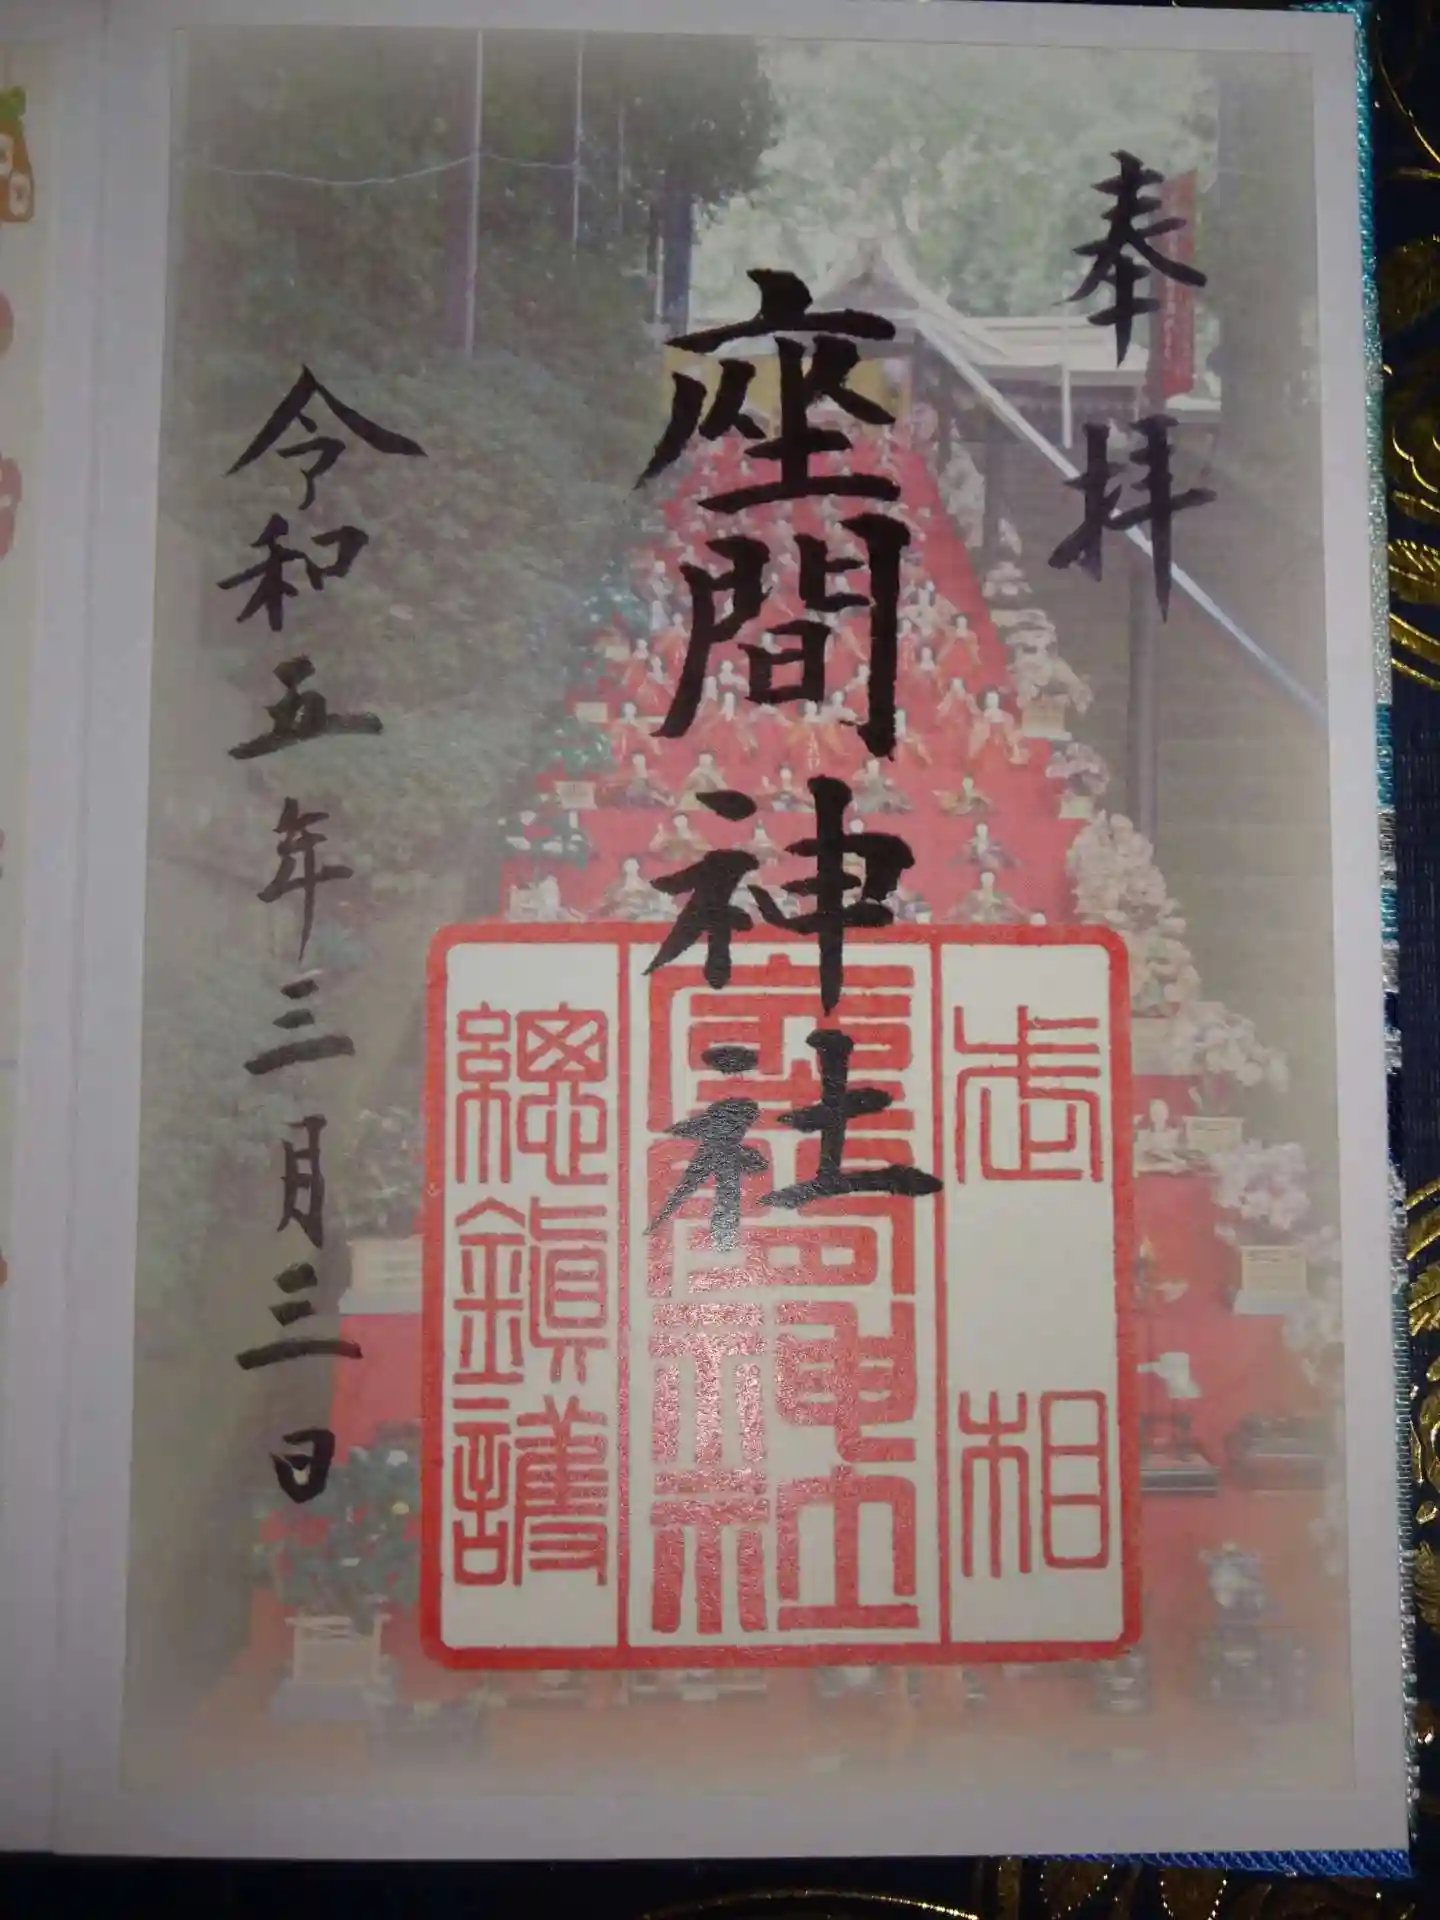 奉拝
座間神社
令和五年三月三日
武相
座間神社
總鎮護